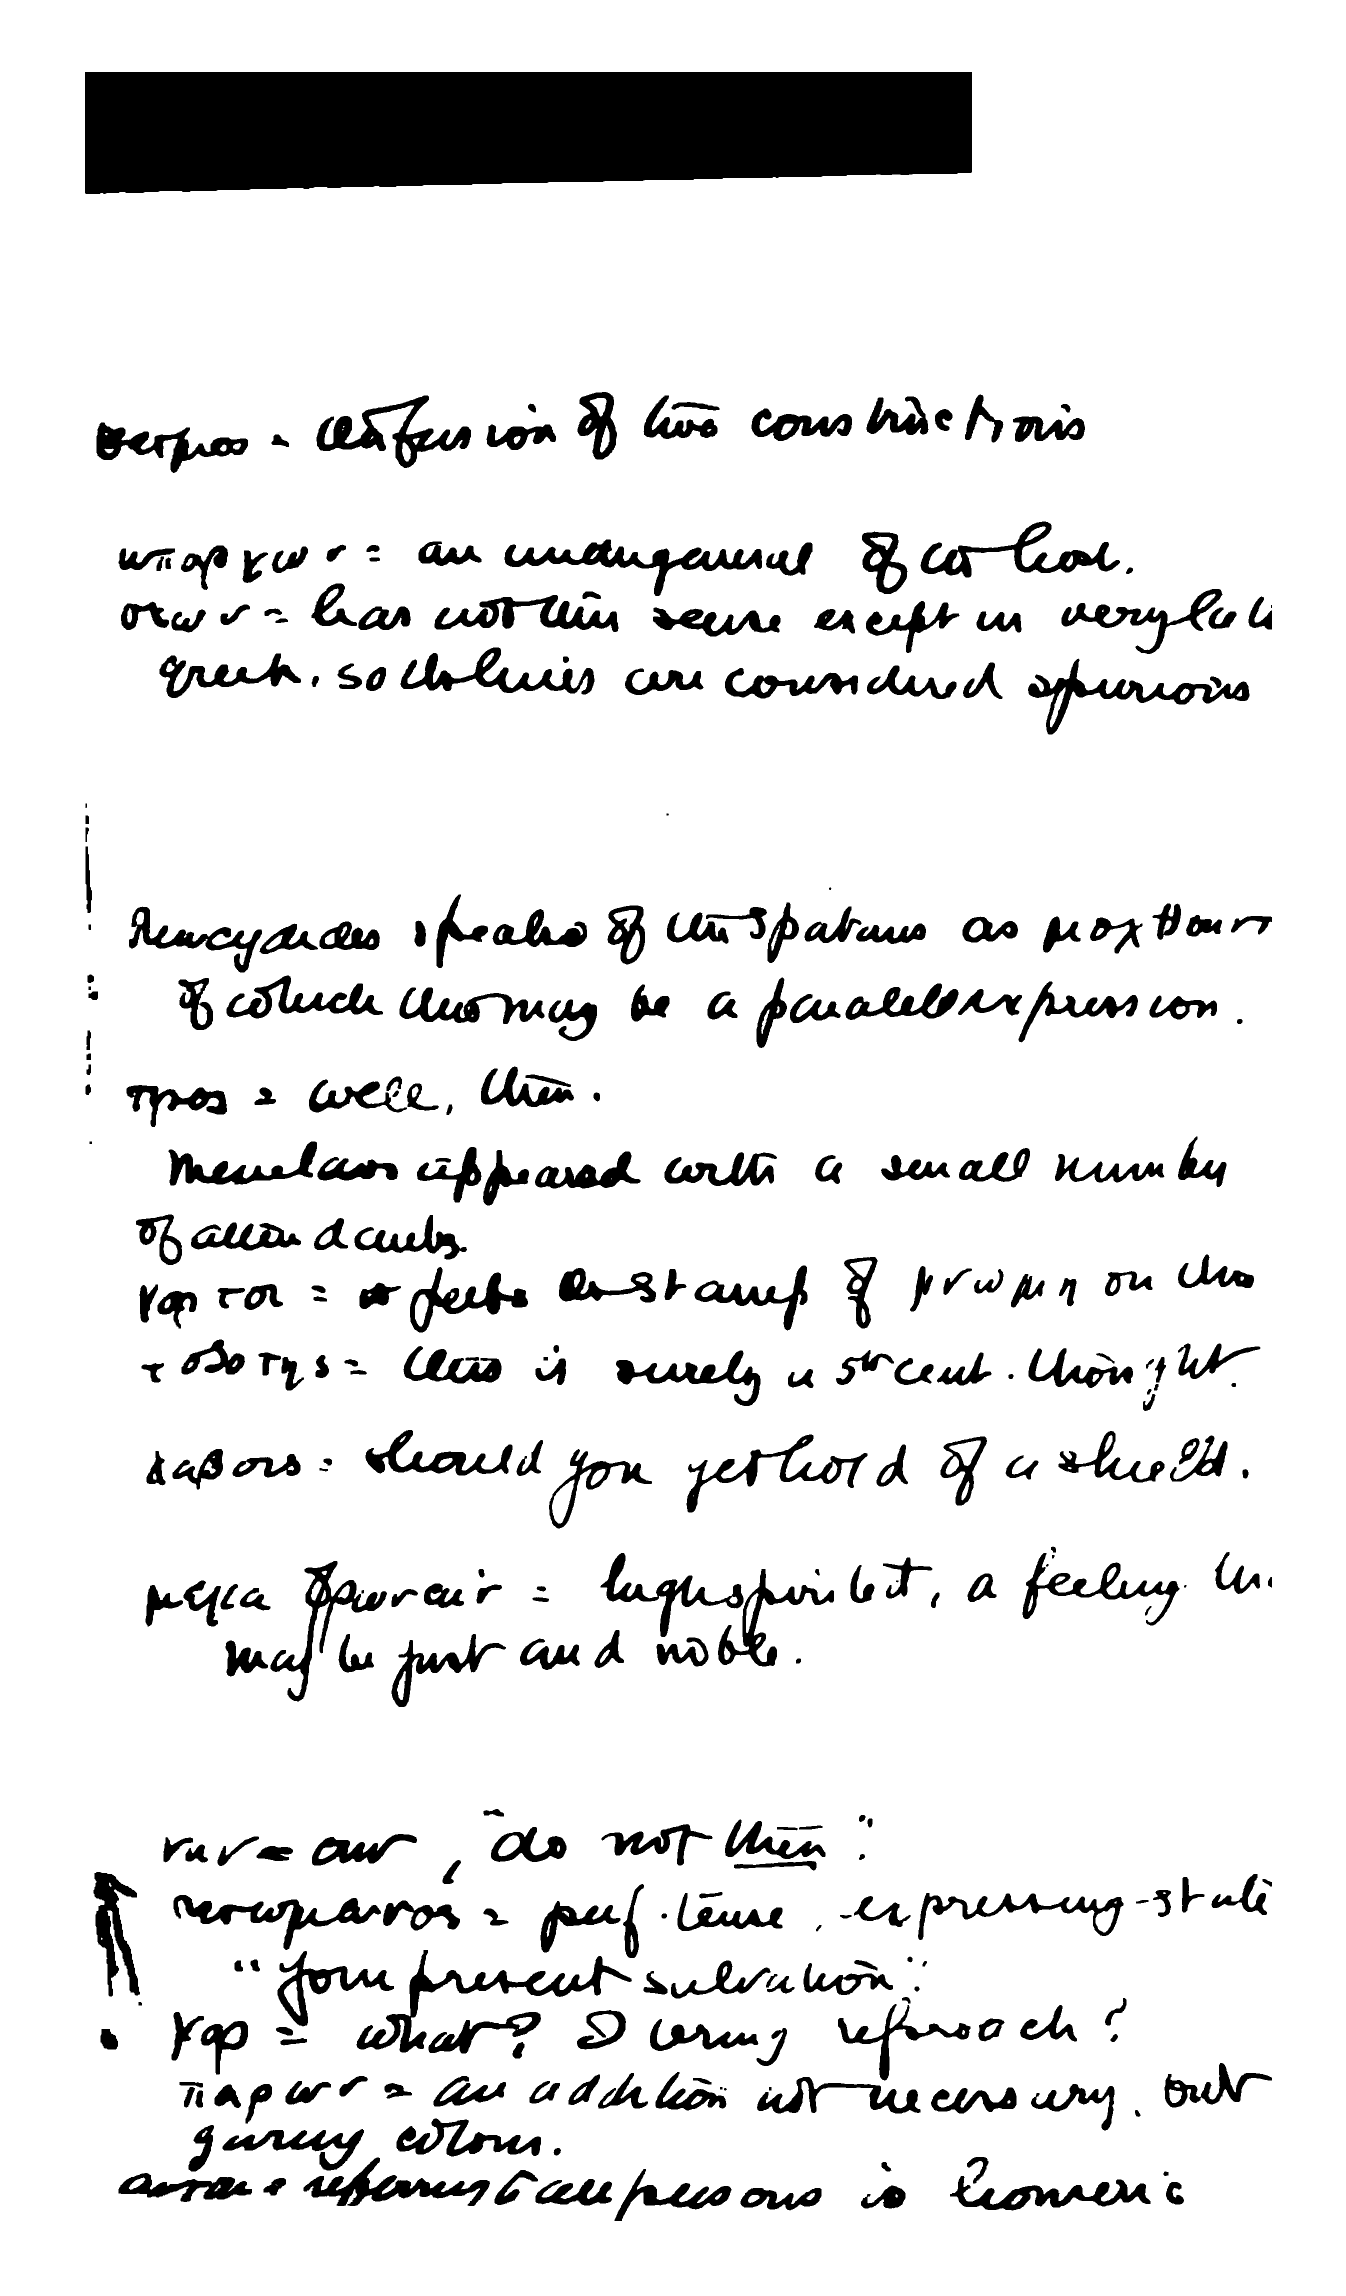 = confusion of two constructions
υπαρχων = an undergeneral of
= has not this sense except in very
greek. so lines are considered spurious
Thucydides speaks of the Spartans as
of which this may be a parallel expression.
προς = well, then.
Menelaos appeared with a small number
of attendants.
= stamp of on this
τοξοτης = this is surely a 5th cent. thought.
λαβοις = should you get hold of a shield.
μεγα φρονειν = high spirit, a feeling
may be just and noble.
νυν = ουν, "do not then"
σεσωμενος = perf. tense, expressing state
"your present salvation"
γαρ = what? I bring reproach?
παρων = an addition not necessary, but
giving colour.
= referring to all persons is homeric